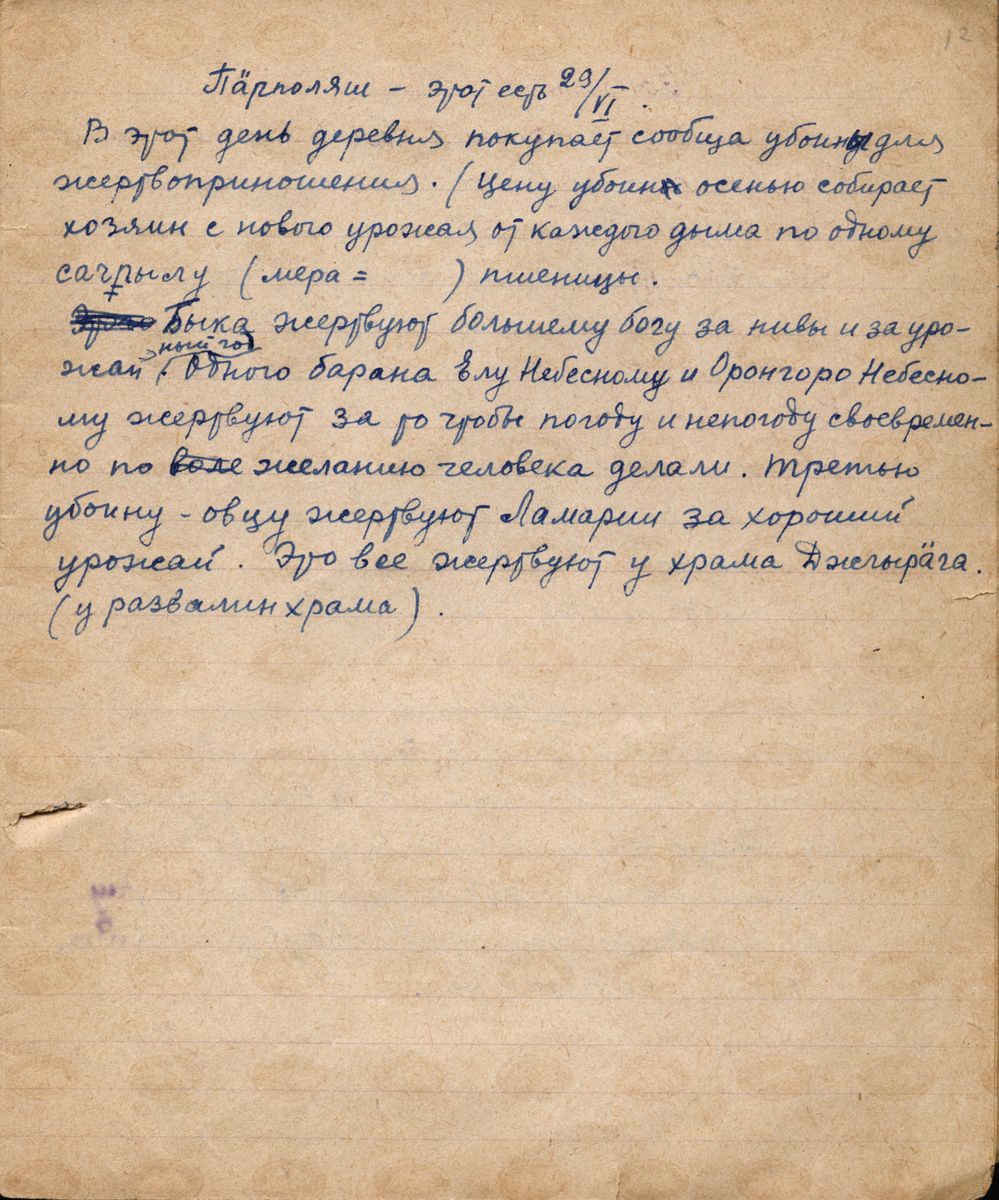 12
Пӓрполяш – этот есть 29/VI.
В этот день деревня покупает сообща убоины для
жертвоприношения. (Цену убоин осенью собирает
хозяин с нового урожая от каждого дыма по одному
(мера = ) пшеницы.
Быка жертвуют большему богу за нивы и за уро-
ный год
жай. Одного барана Елу Небесному и Оронгоро Небесно-
му жертвуют за то чтобы погоду и непогоду своевремен-
но по воле желанию человека делали. Третью
убоину – овцу жертвуют Ламарии за хороший
урожай. Это все жертвуют у храма Джгырӓга.
(у развалин храма).